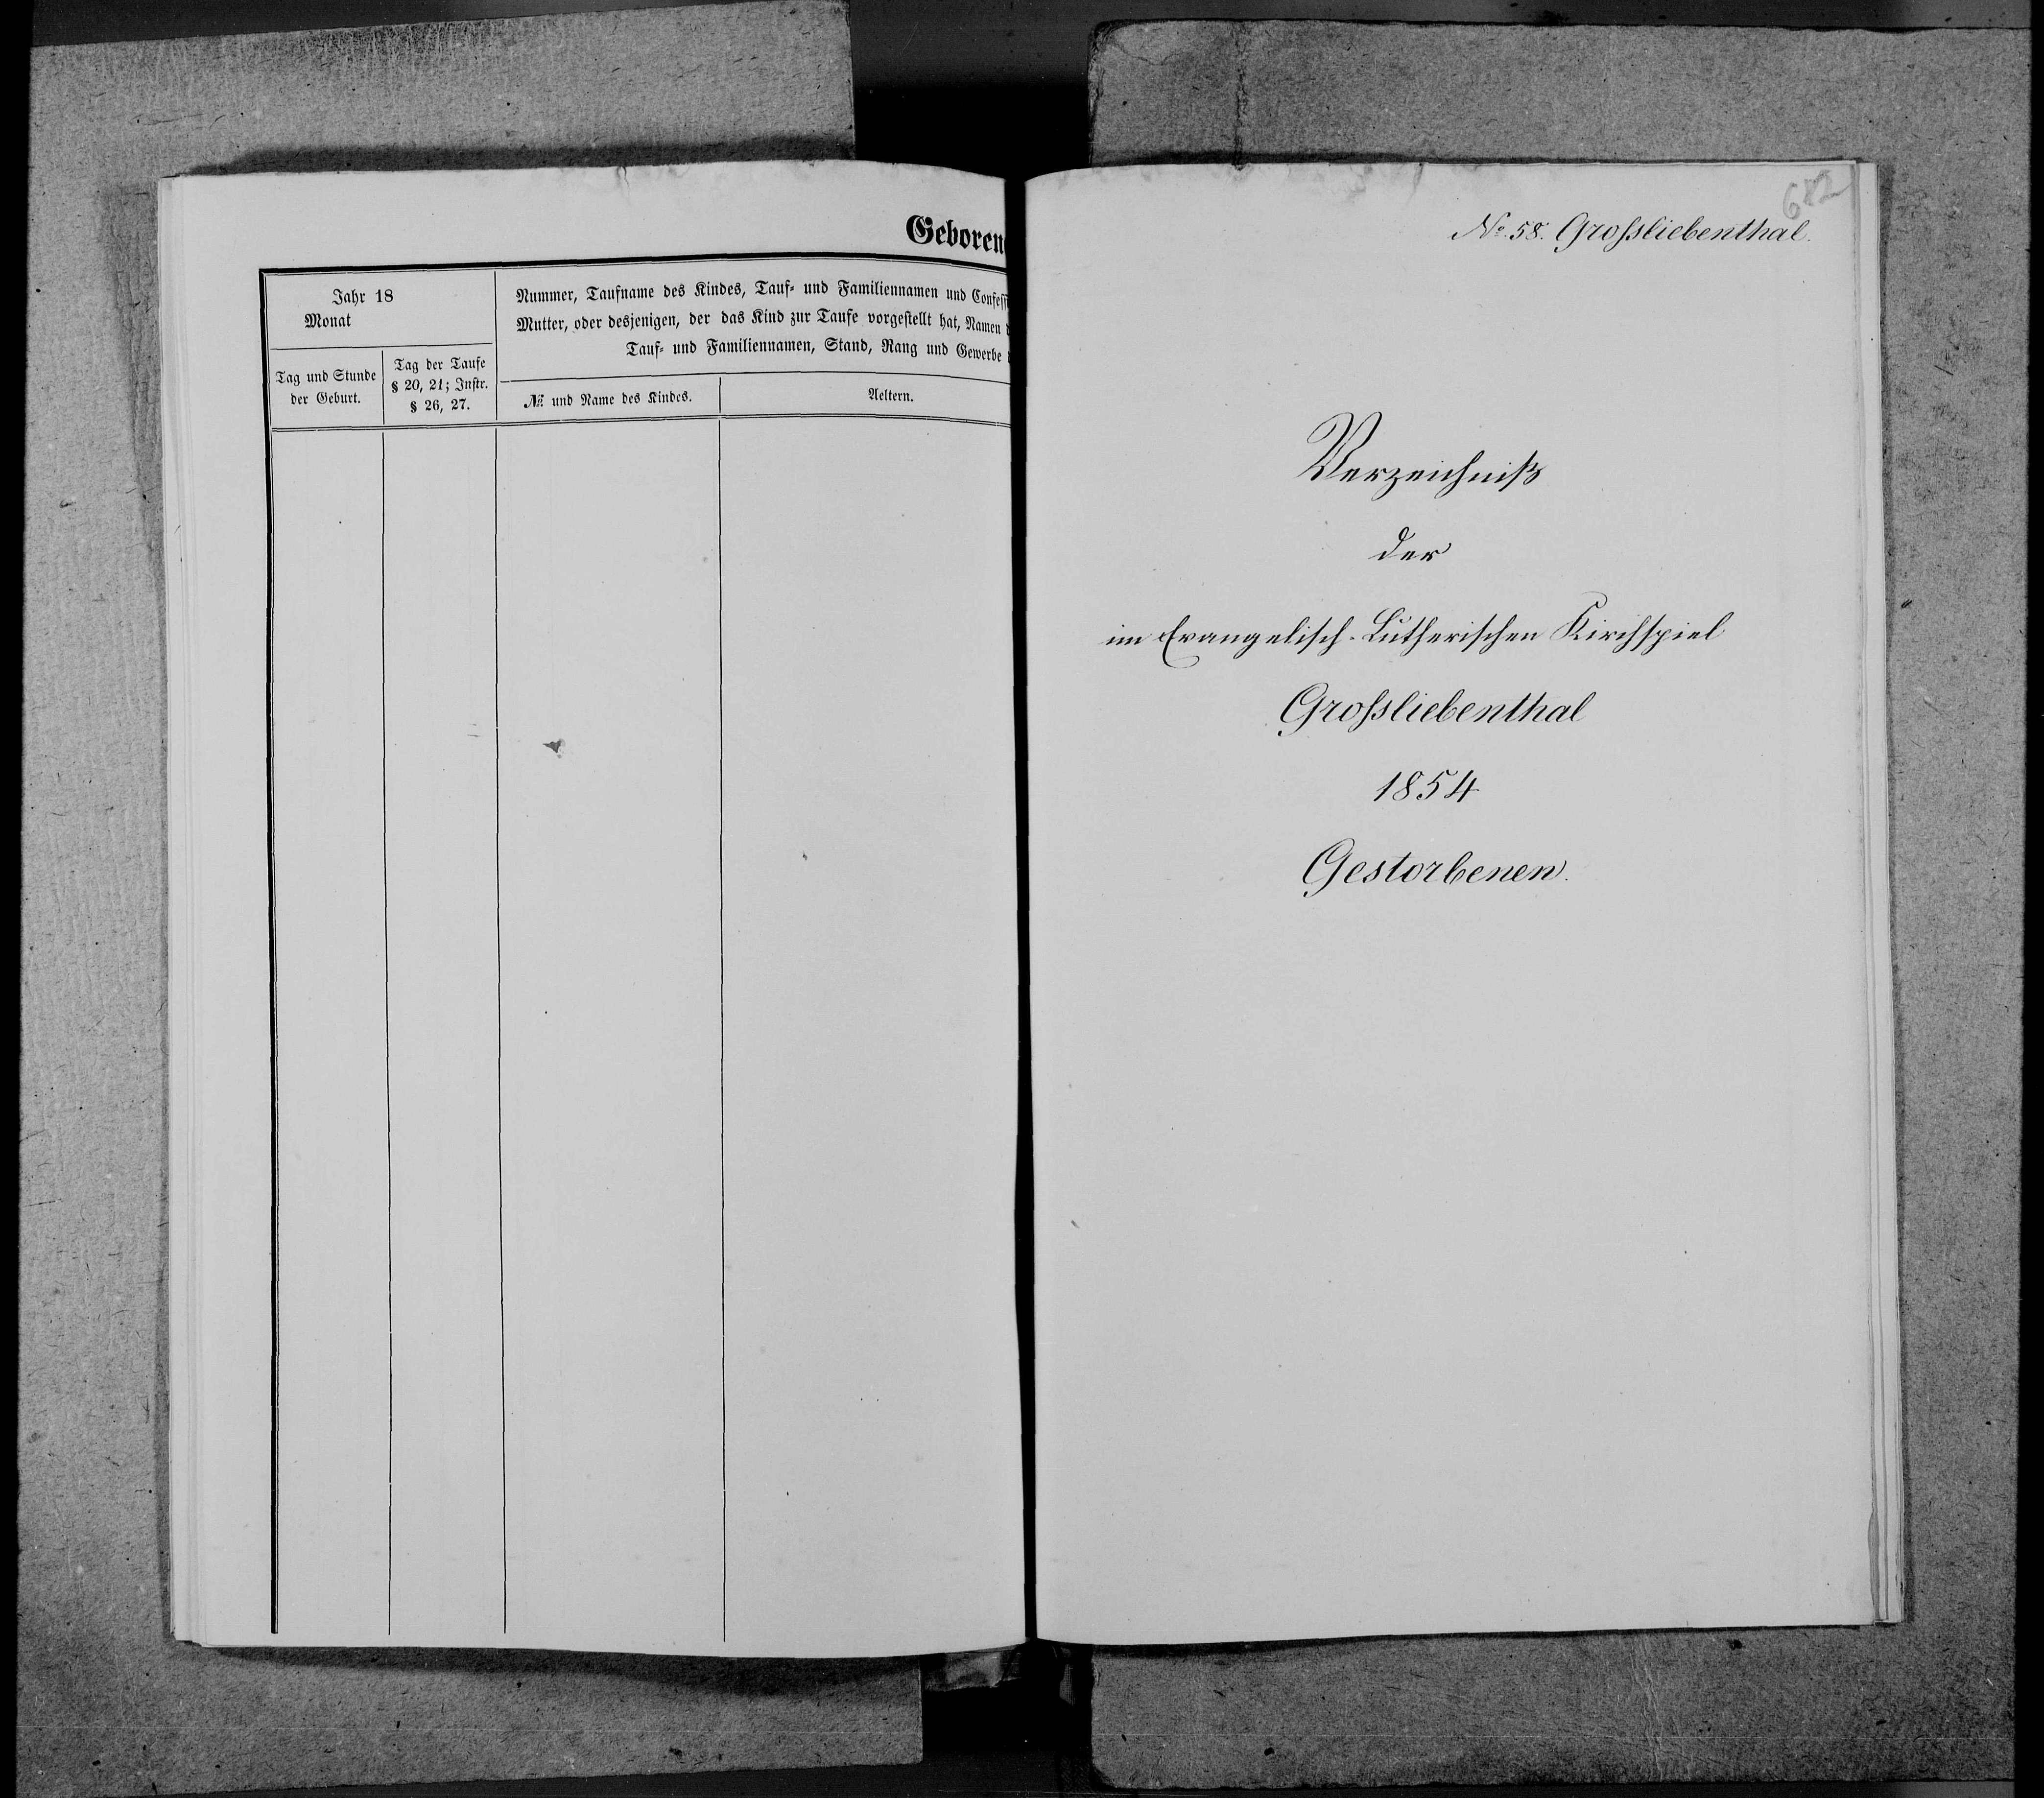 Geboren
Jahr 18
Monat
Tag und Stunde
der Geburt.
Tag der Taufe
§ 20, 21; Instr.
§ 26, 27.
Nummer, Taufname des Kindes, Tauf- und Familiennamen und Confess
Mutter, oder desjenigen, der das Kind zur Taufe vorgestellt hat, Namen
Tauf- und Familiennamen, Stand, Rang und Gewerbe
№ und Name des Kindes.
Aeltern.
682
No. 58. Großliebenthal.
Verzeichniß
der
im Evangelisch-Lutherischen Kirchspiel
Großliebenthal
1854
Gestorbenen.